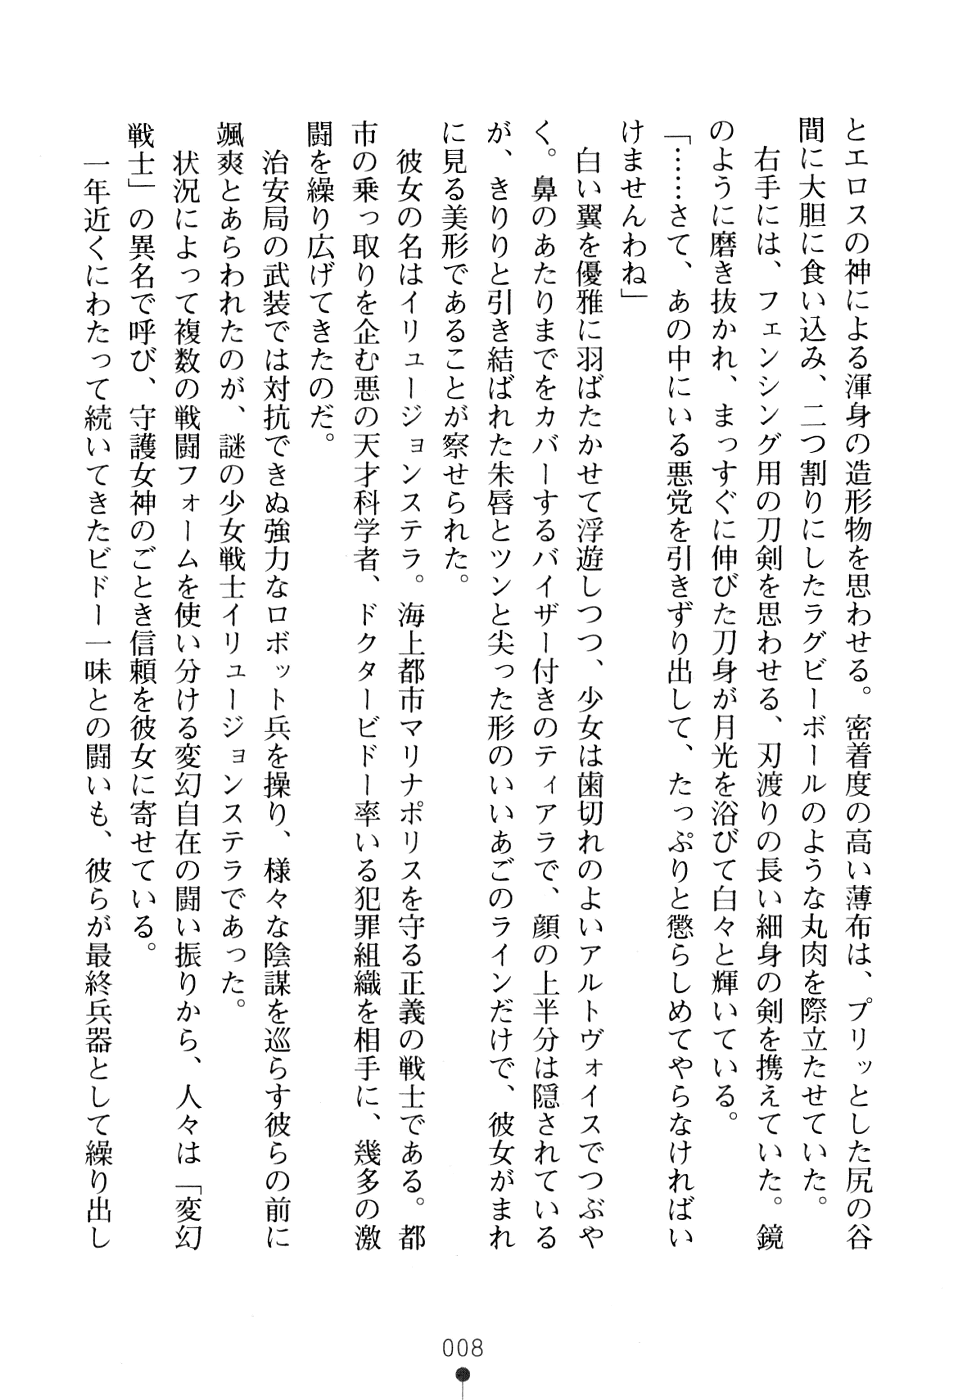 とエロスの神による渾身の造形物を思わせる。密着度の高い薄布は、プリッとした尻の谷
間に大胆に食い込み、二つ割りにしたラグビーボールのような丸肉を際立たせていた。
右手には、フェンシング用の刀剣を思わせる、刃渡りの長い細身の剣を携えていた。鏡
のように磨き抜かれ、まっすぐに伸びた刀身が月光を浴びて白々と輝いている。
「……さて、あの中にいる悪党を引きずり出して、たっぷりと懲らしめてやらなければい
けませんわね」
白い翼を優雅に羽ばたかせて浮遊しつつ、少女は歯切れのよいアルトヴォイスでつぶや
く。鼻のあたりまでをカバーするバイザー付きのティアラで、顔の上半分は隠されている
が、きりりと引き結ばれた朱唇とツンと尖った形のいいあごのラインだけで、彼女がまれ
に見る美形であることが察せられた。
彼女の名はイリュージョンステラ。海上都市マリナポリスを守る正義の戦士である。都
市の乗っ取りを企む悪の天才科学者、ドクタービドー率いる犯罪組織を相手に、幾多の激
闘を繰り広げてきたのだ。
治安局の武装では対抗できぬ強力なロボット兵を操り、様々な陰謀を巡らす彼らの前に
颯爽とあらわれたのが、謎の少女戦士イリュージョンステラであった。
状況によって複数の戦闘フォームを使い分ける変幻自在の闘い振りから、人々は「変幻
戦士」の異名で呼び、守護女神のごとき信頼を彼女に寄せている。
一年近くにわたって続いてきたビドー一味との闘いも、彼らが最終兵器として繰り出し
008